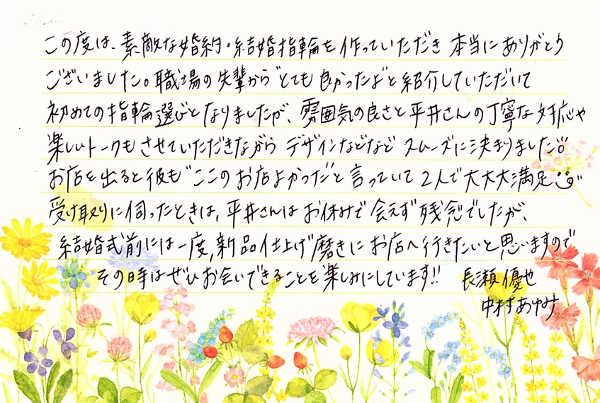 この度は、素敵な婚約・結婚指輪を作っていただき 本当にありがとう
ございました。職場の先輩から"とても良かったよ"と紹介していただいて
初めての指輪選びとなりましたが、雰囲気の良さと平井さんの丁寧な対応や
楽しいトークもさせていただきながら デザインなどなど スムーズに決まりました
お店を出ると彼も"ここのお店よかった"と言っていて 2人で大大大満足
受け取りに伺ったときは、平井さんはお休みで会えず残念でしたが、
結婚式前には一度、新品仕上げ磨きにお店へ行きたいと思いますので
その時はぜひお会いできることを楽しみにしています!! 長瀬優也
中村あゆみ